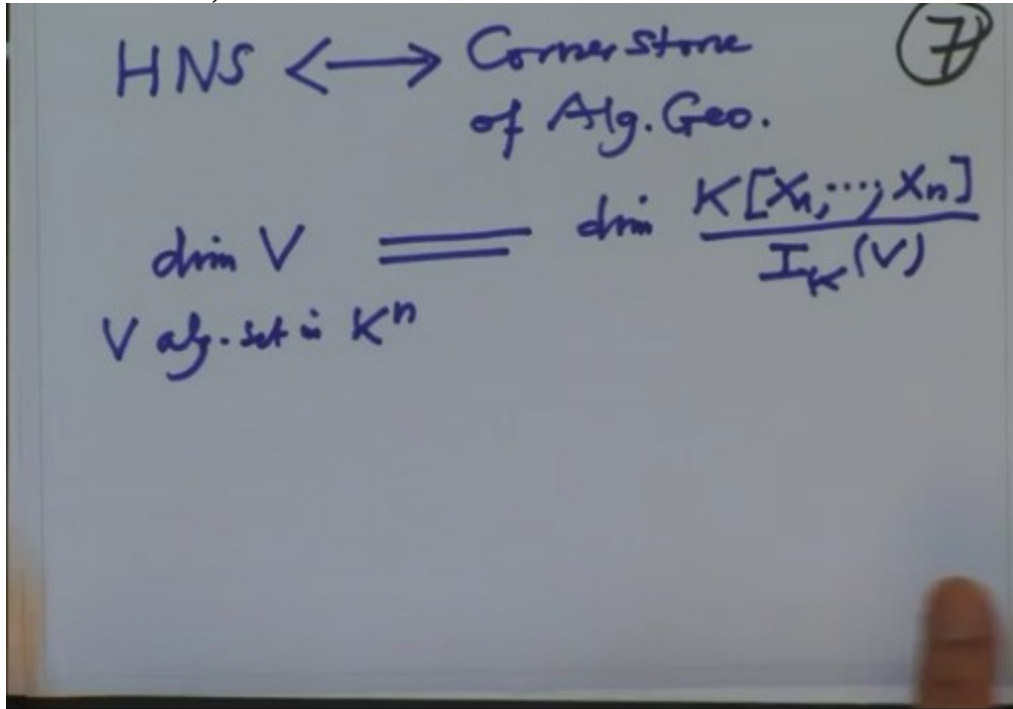 HNS <⟶ Corner Stone ⑦
of Alg. Geo.
dim V = dim K[X₁,⋯,Xₙ] / I_K(V)
V alg. set in Kⁿ